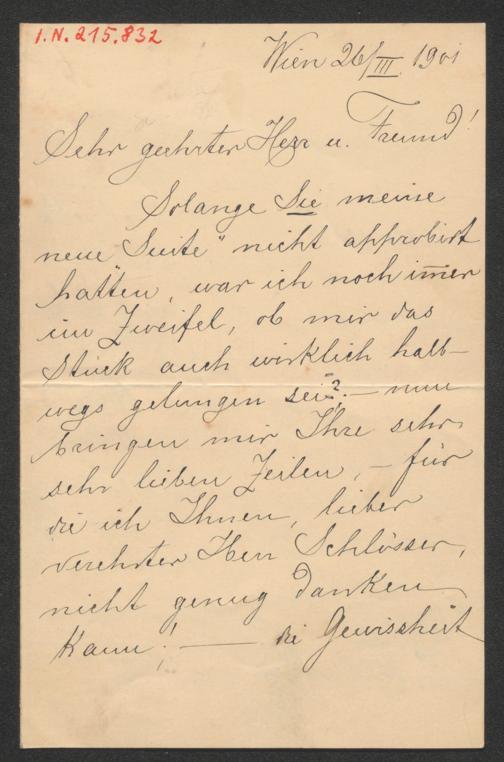 I.N. 215.832
Wien 26/III. 1901
Sehr geehrter Herr u. Freund!
Solange Sie meine
neue Suite" nicht approbirt
hatten, war ich noch im̅er
im Zweifel, ob mir das
Stück auch wirklich halb-
wegs gelungen sei? – nun
bringen mir Ihre sehr
sehr lieben Zeilen, – für
die ich Ihnen, lieber
verehrter Herr Schlösser,
nicht genug danken
kann! — die Gewissheit